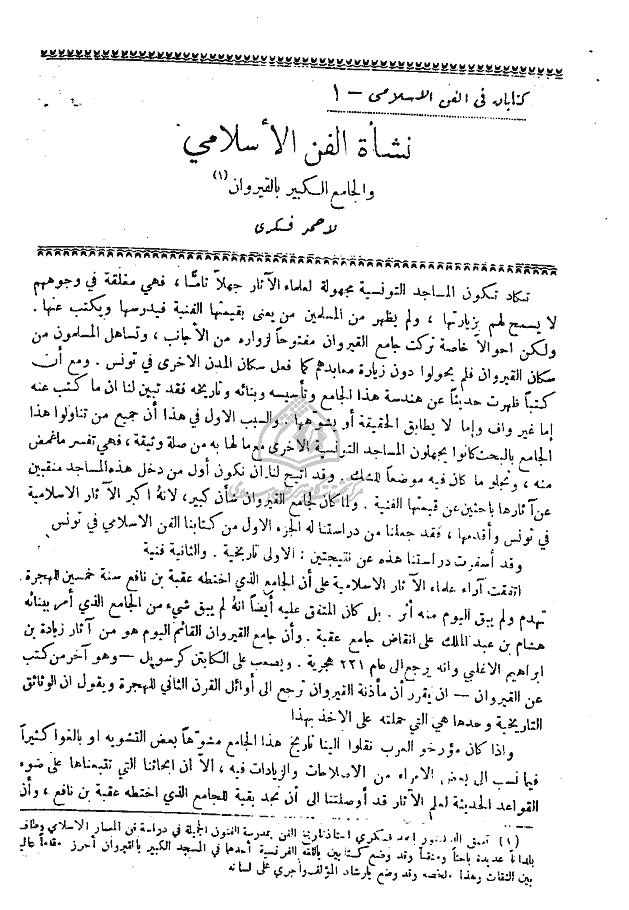 كتابان في الفن الاسلامي — ١
نشأة الفن الأسلامي
والجامع الكبير بالقيروان (١)
لاحمد فكري
تكاد تكون المساجد التونسية مجهولة لعلماء الآثار جهلاً تامًّا ، فهي مغلقة في وجوههم
لا يسمح لهم بزيارتها ، ولم يظهر من المسلمين من يعنى بقيمتها الفنية فيدرسها ويكتب عنها .
ولكن احوالاً خاصة تركت جامع القيروان مفتوحاً لزواره من الأجانب ، وتساهل المسلمون من
سكان القيروان فلم يحولوا دون زيارة معابدهم كما فعل سكان المدن الاخرى في تونس . ومع أن
كتباً ظهرت حديثاً عن هندسة هذا الجامع وتأسيسه وبنائه وتاريخه فقد تبين لنا ان ما كتب عنه
إما غير واف وإما لا يطابق الحقيقة أو يشوهها . والسبب الاول في هذا أن جميع من تناولوا هذا
الجامع بالبحث كانوا يجهلون المساجد التونسية الاخرى مع ما لها به من صلة وثيقة ، فهي تفسر ما غمض
منه ، وتجلو ما كان فيه موضعاً للشك . وقد اتيح لنا ان نكون أول من دخل هذه المساجد منقبين
عن آثارها باحثين عن قيمتها الفنية . ولما كان لجامع القيروان شأن كبير ، لانهُ اكبر الآثار الاسلامية
في تونس وأقدمها ، فقد جعلنا من دراستنا له الجزء الاول من كتابنا الفن الاسلامي في تونس
وقد أسفرت دراستنا هذه عن نتيجتين : الاولى تاريخية . والثانية فنية
اتفقت آراء علماء الآثار الاسلامية على أن الجامع الذي اختطه عقبة بن نافع سنة خمسين للهجرة
تهدم ولم يبق اليوم منه أثر . بل كان المتفق عليه أيضاً انهُ لم يبق شيء من الجامع الذي أمر ببنائه
هشام بن عبد الملك على انقاض جامع عقبة . وأن جامع القيروان القائم اليوم هو من آثار زيادة بن
ابراهيم الاغلبي وانه يرجع الى عام ٢٢١ هجرية . ويصعب على الكابتن كرسويل — وهو آخر من كتب
عن القيروان — ان يقرر أن مأذنة القيروان ترجع الى أوائل القرن الثاني للهجرة ويقول ان الوثائق
التاريخية وحدها هي التي حملته على الاخذ بهذا
واذا كان مؤرخو العرب نقلوا الينا تاريخ هذا الجامع مشوّهاً بعض التشويه او بالغوا كثيراً
فيما نسب الى بعض الامراء من الاصلاحات والزيادات فيه ، الاّ ان ابحاثنا التي تتبعناها على ضوء
القواعد الحديثة لعلم الآثار قد أوصلتنا الى أن نجد بقية للجامع الذي اختطه عقبة بن نافع ، وأن
(١) احمد فكري استاذ تاريخ الفن بمدرسة الفنون الجميلة في دراسة فن المسار الاسلامي وطاف
بلداناً عديدة باحثاً ومنقباً وقد وضع كتابين باللغة الفرنسية أحدهما في المسجد الكبير بالقيروان أحرز مقاماً
بين الثقات وهذا ملخصه وقد وضع بارشاد المؤلف وأجري على لسانه